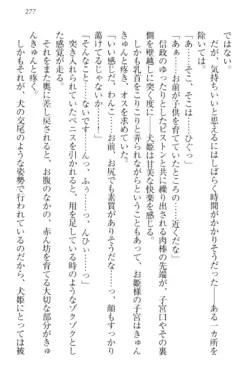 277
ではない。
だが、気持ちいいと思えるにはしばらく時間がかかりそうだった――ある一カ所を
除いては。
「あぁ……あ、そこは……ひぐっ」
「あぁ……お前が子供を育てていたところの……近くだな」
信政のゆったりとしたピストンと共に繰り出される肉棒の先端が、子宮口やその裏
側を壁越しに突く度に――犬姫は甘美な快楽を感じる。
しかも乳首をこりこりと弄られながらということもあって、お姫様の子宮はきゅん
きゅんと疼き、オスを求めていた。
「いい感じだ、わんこ……お前、お尻でも素質がありそうだな……っ、顔もこんなに
蕩けてるじゃないか……」
「そんなこと……まっ、です……んっ、ふっ、んひぃ……っ」
突き入れられていたペニスを引かれると、用を足しているときのようなゾクゾクとし
た感覚が走る。
それをまた奥に差し戻されると、お腹の、赤ん坊のための大切な部分がきゅんき
ゅんと疼く。
しかもそれが、犬の交尾のような姿勢で行われているのだから、犬姫にとっては被